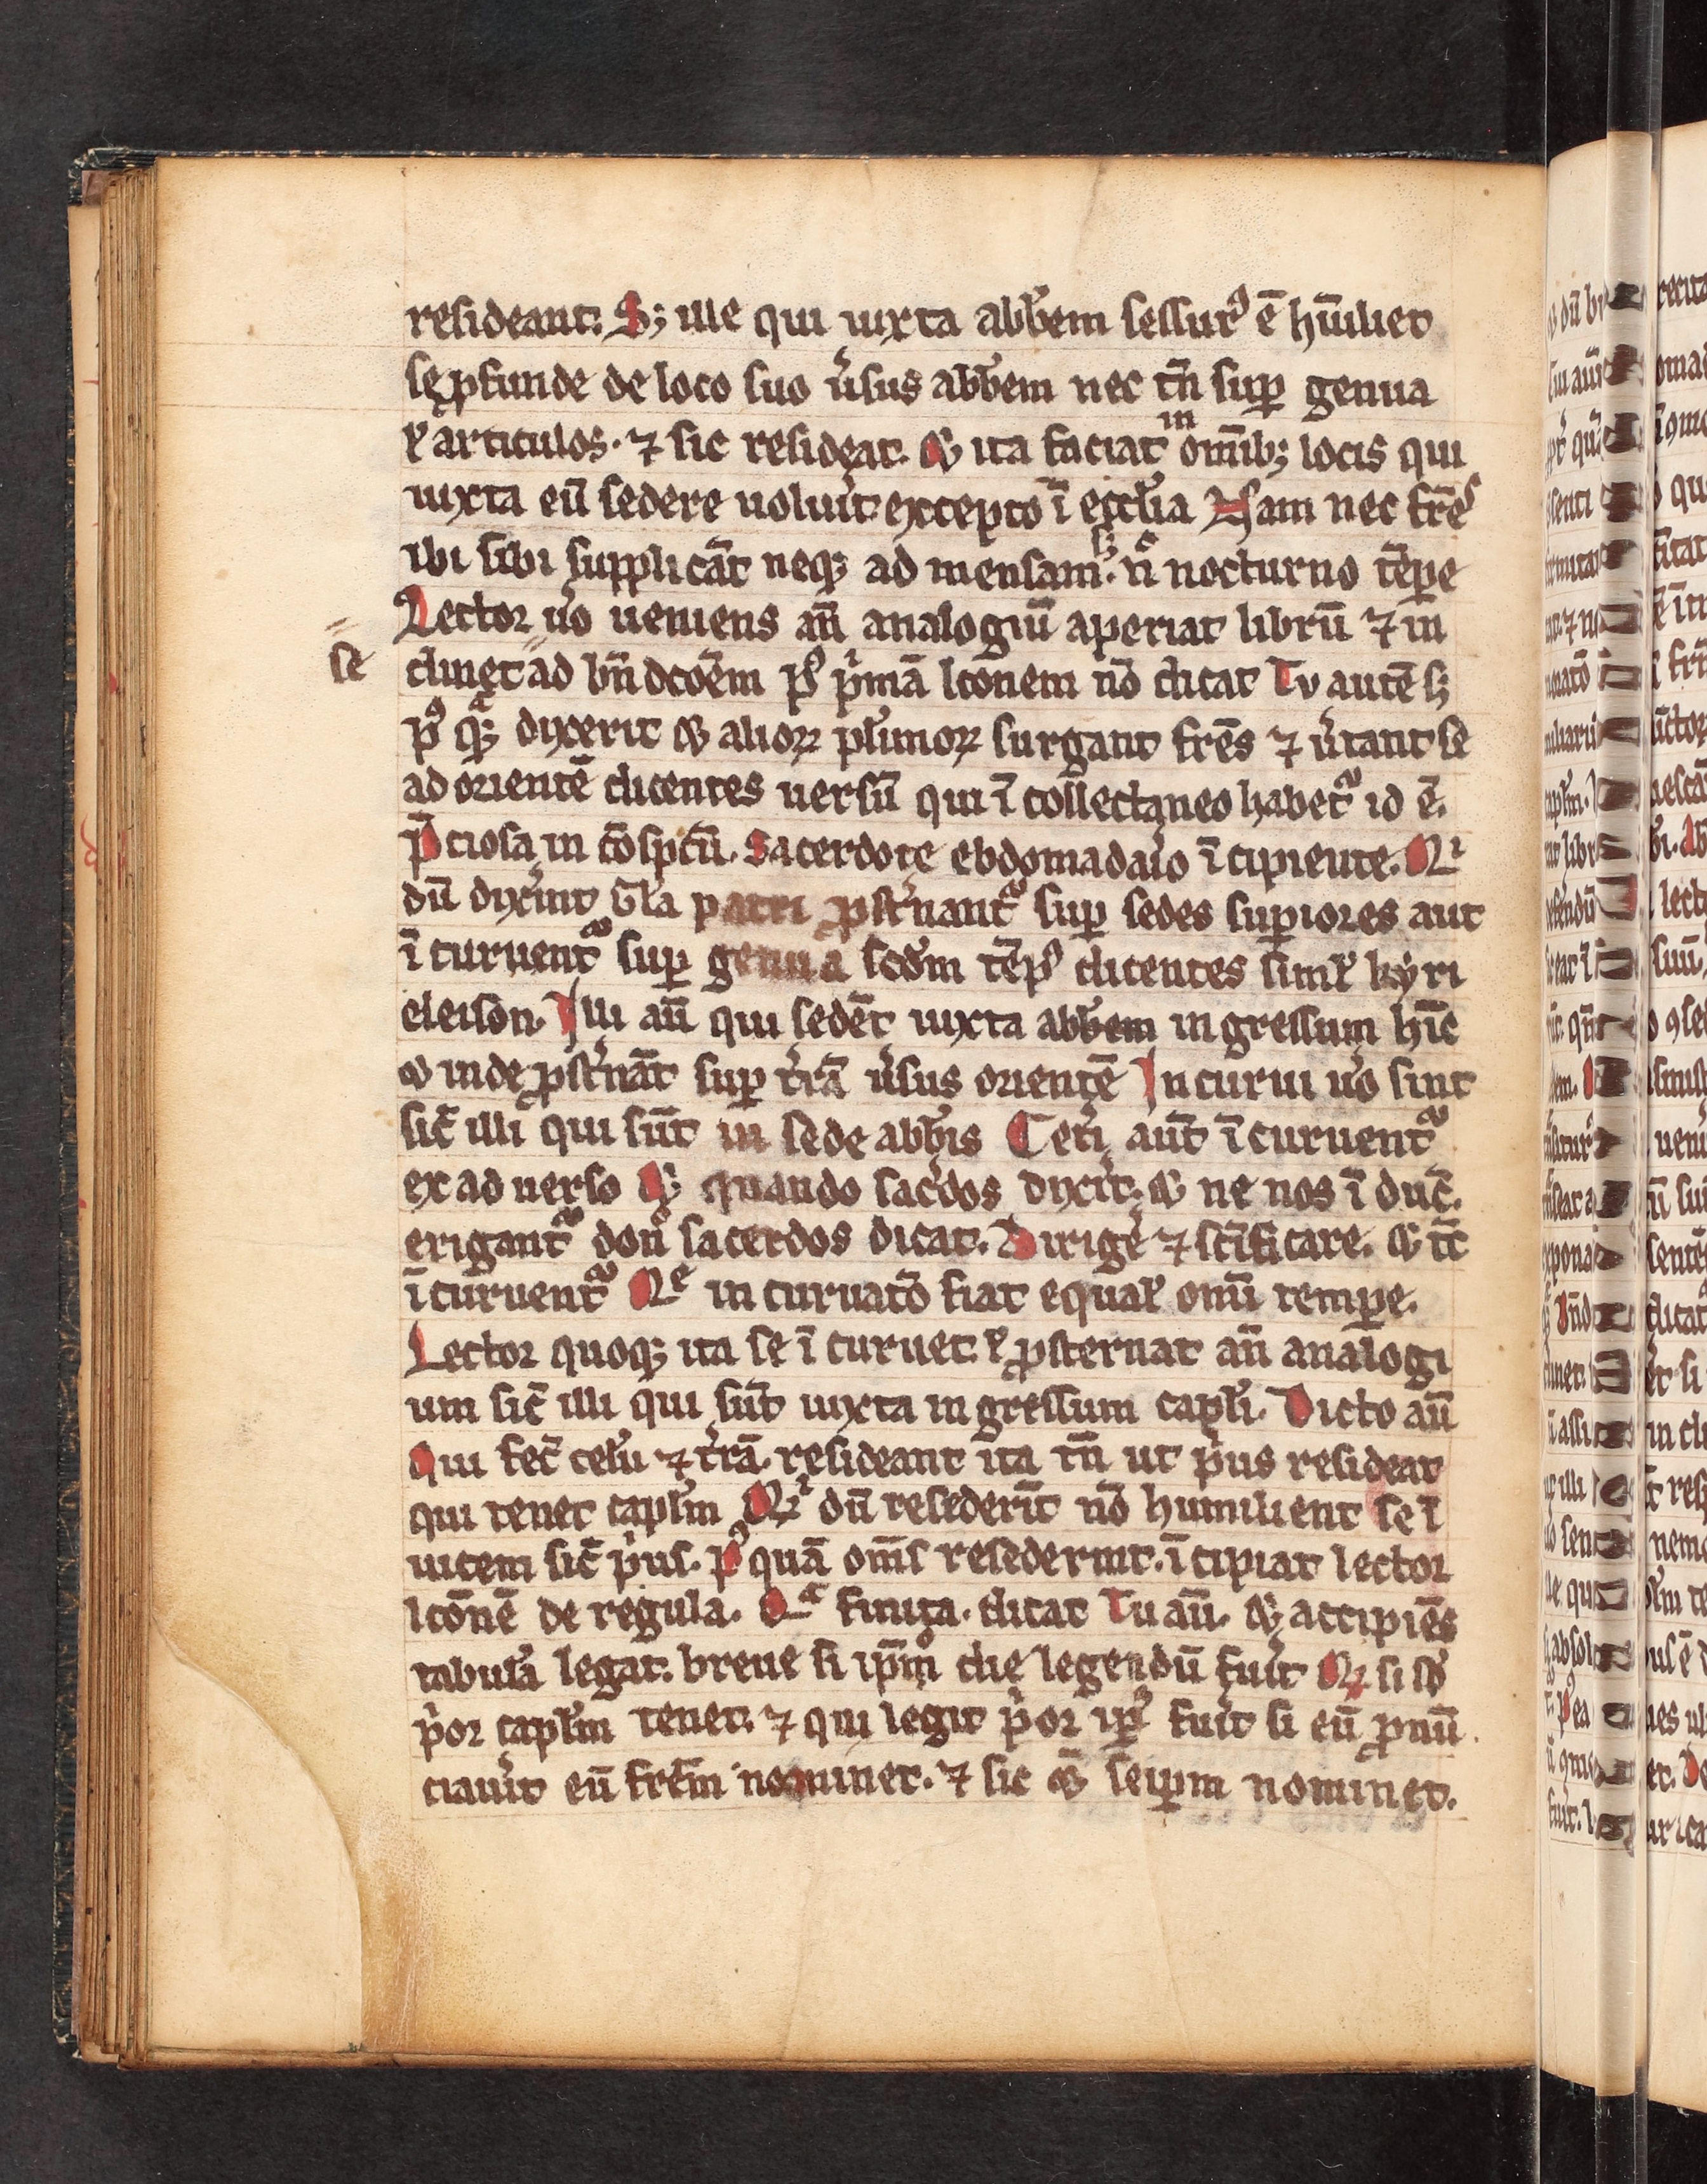 resideant. S; ille qui iuxta abb̄em sessur⁹ ē hūilier
se ꝓfunde de loco suo ûsus abb̄em nec tn̄ suꝑ genua
ł articulos. ⁊ sic resideat. Qđ ita faciat in om̄ib; locis qui
iuxta eū sedere uoluīt excepto ī eccl̄ia Nam nec fr̄es
ibi sibi supplicāt neq; ad mensam. s; n̄ nocturno tēpe
Lector u̾o ueniens an̄ analogiū aperiat librū ⁊ in
se
clinet ad bn̄dcōem p⁹ p̾mā lcōnem nō dicat Tu autē s;
p⁹ qͣ dixerit qđ alioꝝ pl̾imoꝝ surgant fr̄es ⁊ u̾tant se
ad orientē dicentes uersū qui ī collectaneo habet᷑ id ē.
p̄ciosa in cōspc̄tū. Sacerdote ebdomadaı̾o ī cipiente. Qi
dū dix̾int Gl̄a patri ꝓst̾nant᷑ suꝑ sedes suꝑiores aut
ī curuent᷑ suꝑ genua scđm tēp⁹ dicentes simł kyri
eleison. Illi aū qui sedēt iuxta abb̄em ingressum hīc
⁊ inde ꝓst̾nāt suꝑ t̾rā u̾sus orientē Incurui u̾o sint
sic̄ illi qui sūt in sede abb̄is Cet̾i aut̄ ī curuent᷑
ex aduerso Qͣ; quando sac̾dos dix̾it; ⁊ ne nos ī duc̄.
erigant᷑ donͨ sacerdos dicat. Dirige̾ ⁊ sc̄ificare. ⁊ tc̄
ī curuent᷑ Qͤ in curuatō fiat equał om̄i tempe.
Lector quoq; ita se ī curuet. ł ꝓsternat an̄ analogi
um sic̄ illi qui sūt iuxta ingressum capł̾i. Dicto aū
Qui fec̄ celū ⁊ t̾rā. resideant ita tn̄ ut p̾us resideat
qui tenet capłm Qͥ dū resederīt nō humilient se ī
uicem sic̄ p̾us. p⁹quā om̄s resederint. ī cipiat lector
lcōnē de regula. Qͣ finita. dicat Tu aū. Qđ accipiēs
tabulā legat. breue si ip̄mͦ die legendū fu̾it Qꝛ si sb̾
p̾or capłm tenet. ⁊ qui legit p̾or ip̄e fu̾it si eū ꝓnū
ciau̾it eū fr̄em nominet. ⁊ sic qđ seip̄m nominet.